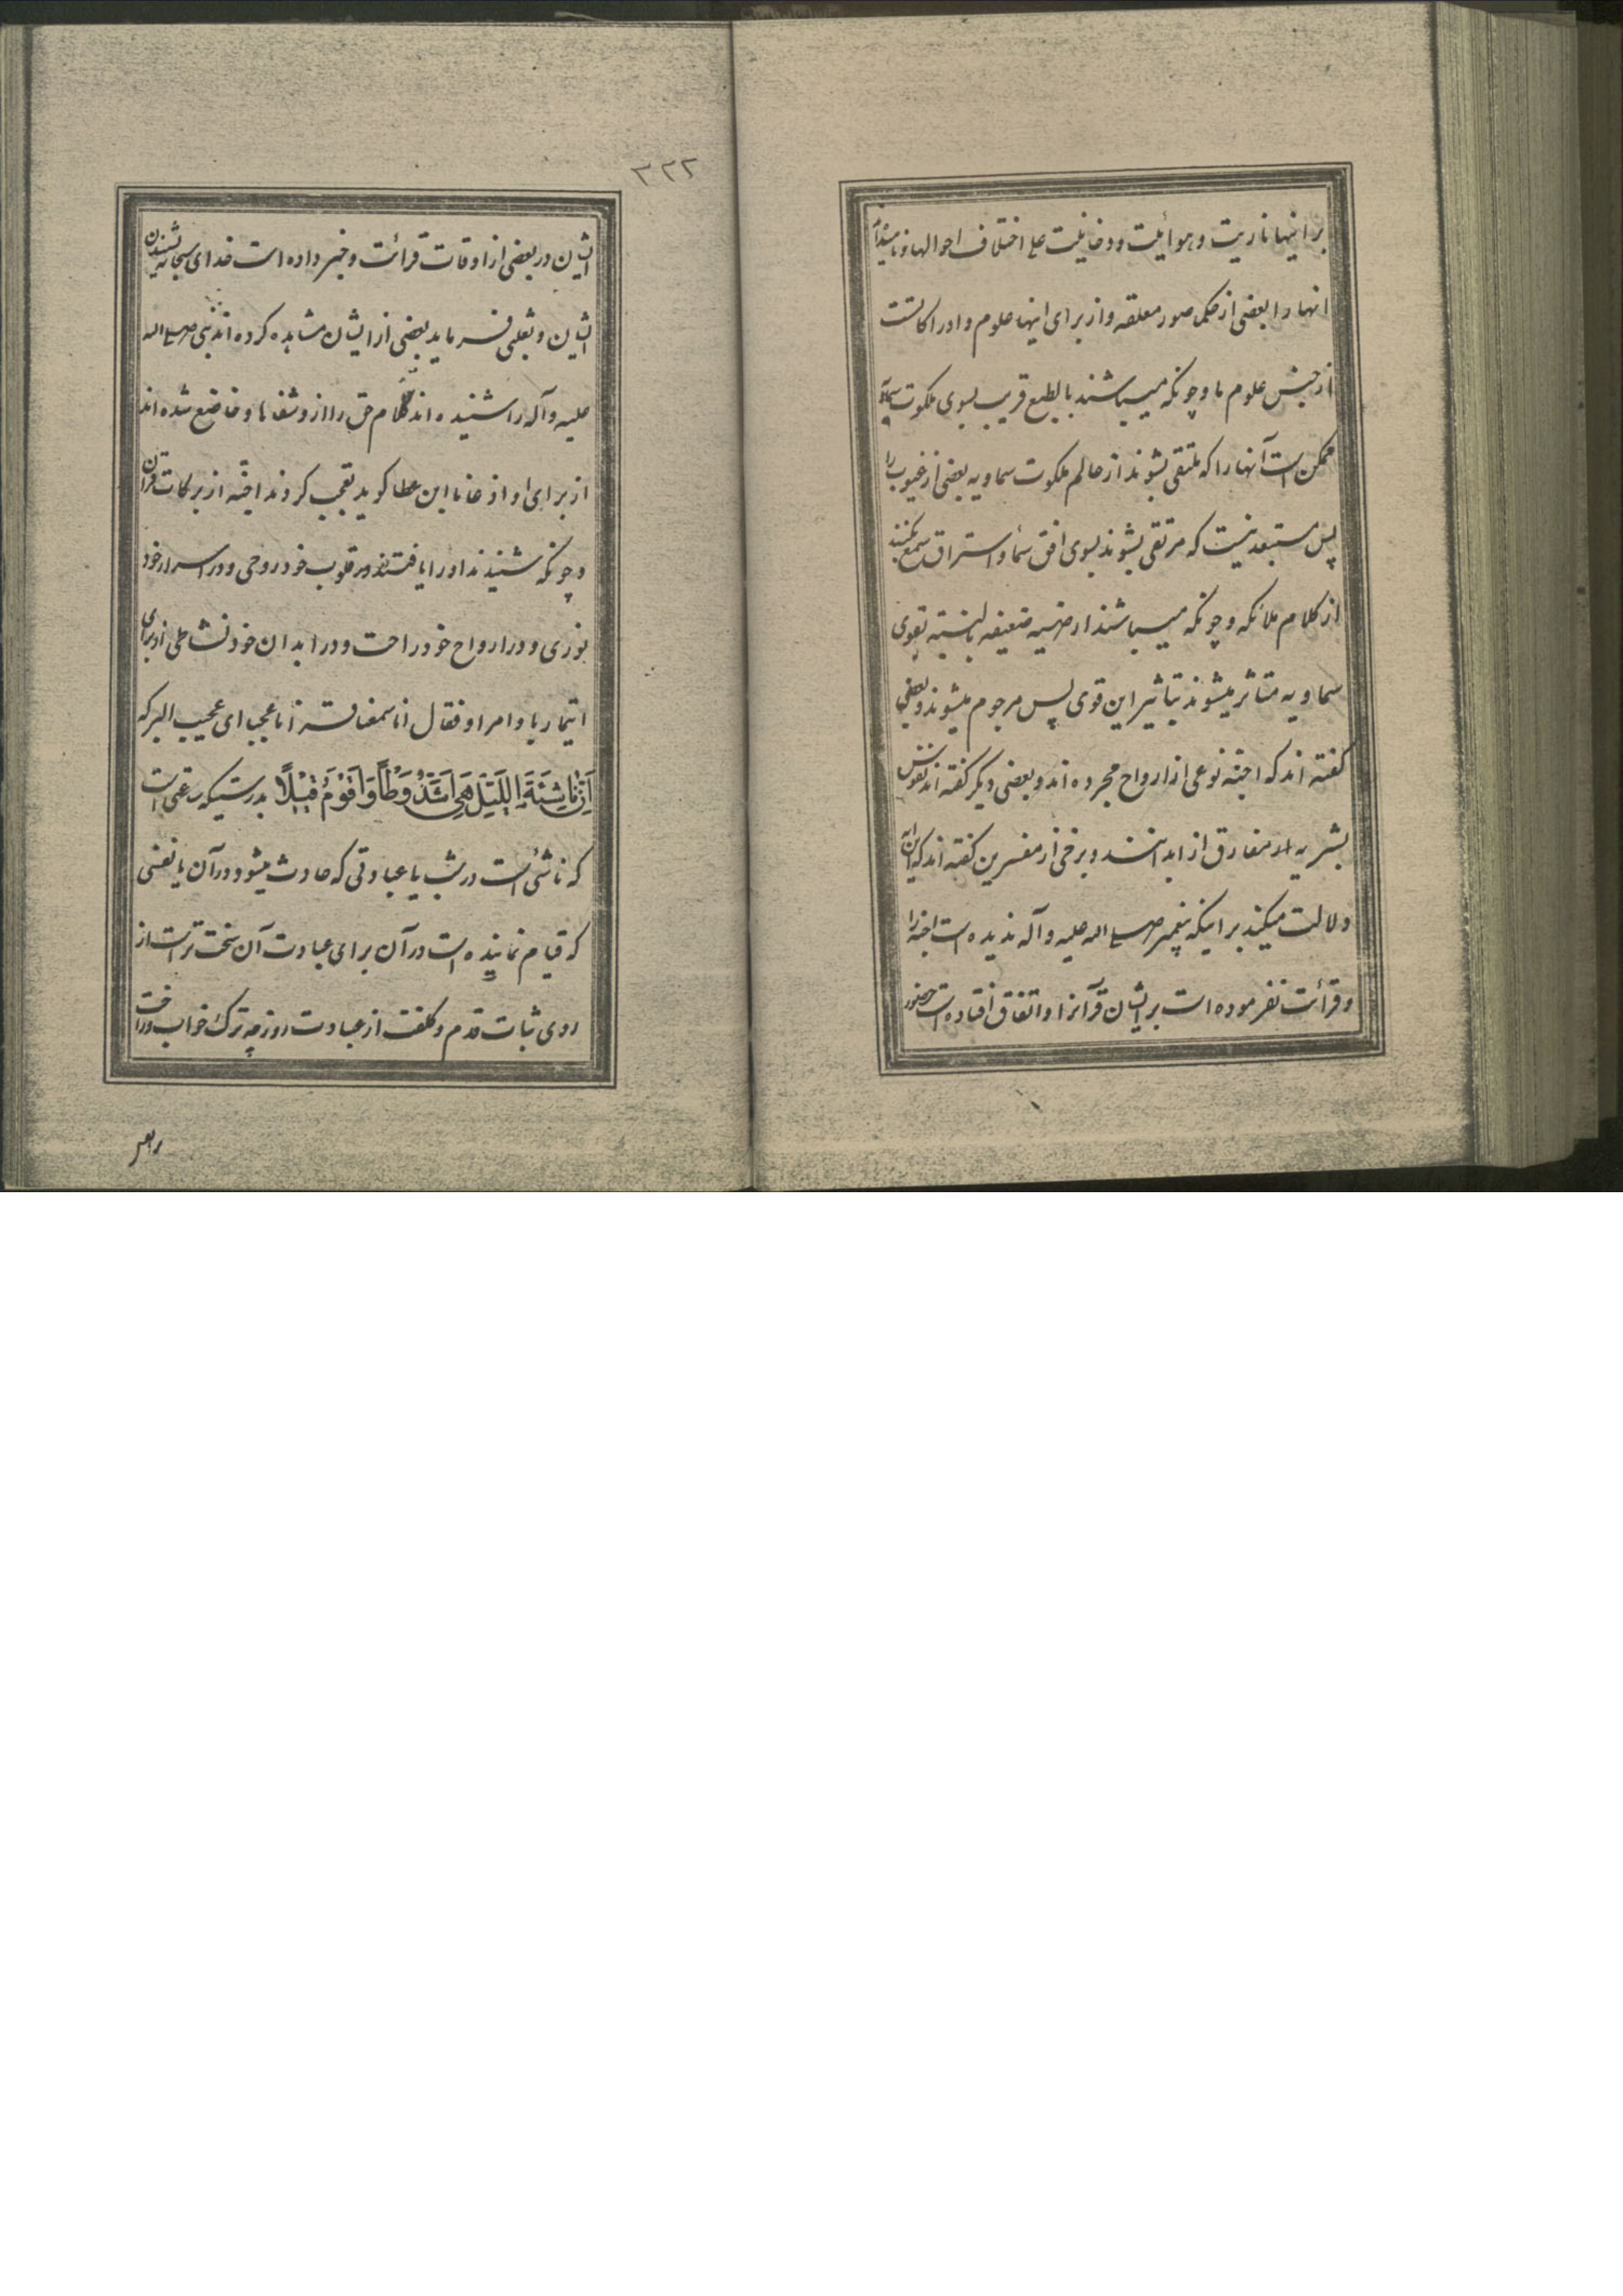 بر اینها ناریت و هوائیت و دخانیت علی اختلاف احوالها و نامیده‌اند
انها را بعضی از حکما صور معلقه و از برای اینها علوم و ادراکاتست
از جنس علوم ما و چونکه میباشند بالطبع قریب بسوی ملکوت سماویه
ممکن است آنها را که ملتقی بشوند از عالم ملکوت سماویه بعضی از غیوب را
پس مستبعد نیست که مرتقی بشوند بسوی افق سماء و استراق سمع بکنند
از کلام ملائکه و چونکه میباشند ارضیه ضعیفه بالنسبه بقوی
سماویه متاثر میشوند بتاثیر این قوی پس مرجوم میشوند و بعضی
گفته اند که اجنه نوعی از ارواح مجرده اند و بعضی دیگر گفته اند نفوس
بشریه مفارق از ابدانند و برخی از مفسرین گفته اند که این
دلالت میکند بر اینکه پیغمبر صلی الله علیه و آله ندیده است اجنه را
و قرائت نفرموده است بر ایشان قرآنرا و اتفاق افتاده است حضور
۳۲۲
ایشان در بعضی از اوقات قرائت و خبر داده است خدای سبحانه بشنیدن
ایشان و ثعلبی فرماید بعضی از ایشان مشاهده کرده اند نبی صلی الله
علیه و آله را شنیده اند کلام حق را از و شفاها و خاضع شده اند
از برای او اذعانا ابن عطا کوید تعجب کردند اجنه از برکات قرآن
و چونکه شنیدند او را یافتند در قلوب خود روحی و در اسرار خود
نوری و در ارواح خود راحت و در ابدان خود نشاطی از برای
ایتمار با وامر او فقال انا سمعنا قرانا عجبا ای عجیب البرکه
اِنَّ نَاشِئَةَ اللَّیْلِ هِیَ اَشَدُّ وَطْأً وَاَقْوَمُ قِیْلًا بدرستیکه ساعتی است
که ناشئ است در شب یا عبادتی که حادث میشود در آن یا نفسی
که قیام نماینده است در آن برای عبادت آن سخت تر است از
روی ثبات قدم و کلفت از عبادت روز چه ترک خواب و راحت